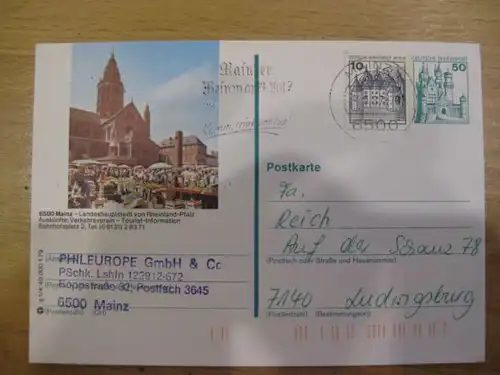 10
DEUTSCHE BUNDESPOST BERLIN
50
DEUTSCHE BUNDESPOST
Mainzer
Weinmarkt
MAINZ
6500
Postkarte
Fa.
Reich
Auf der Schanz 78
(Postfach oder Straße und Hausnummer)
7140 Ludwigsburg
(Postleitzahl) (Bestimmungsort)
6500 Mainz – Landeshauptstadt von Rheinland-Pfalz
Auskünfte: Verkehrsverein – Tourist-Information
Bahnhofsplatz 2, Tel. (0 61 31) 2 83 71
PHILEUROPE GmbH & Co
PSchk. Lshfn 122912-672
Koppstraße 32, Postfach 3645
6500 Mainz
(Postleitzahl) (Ort)